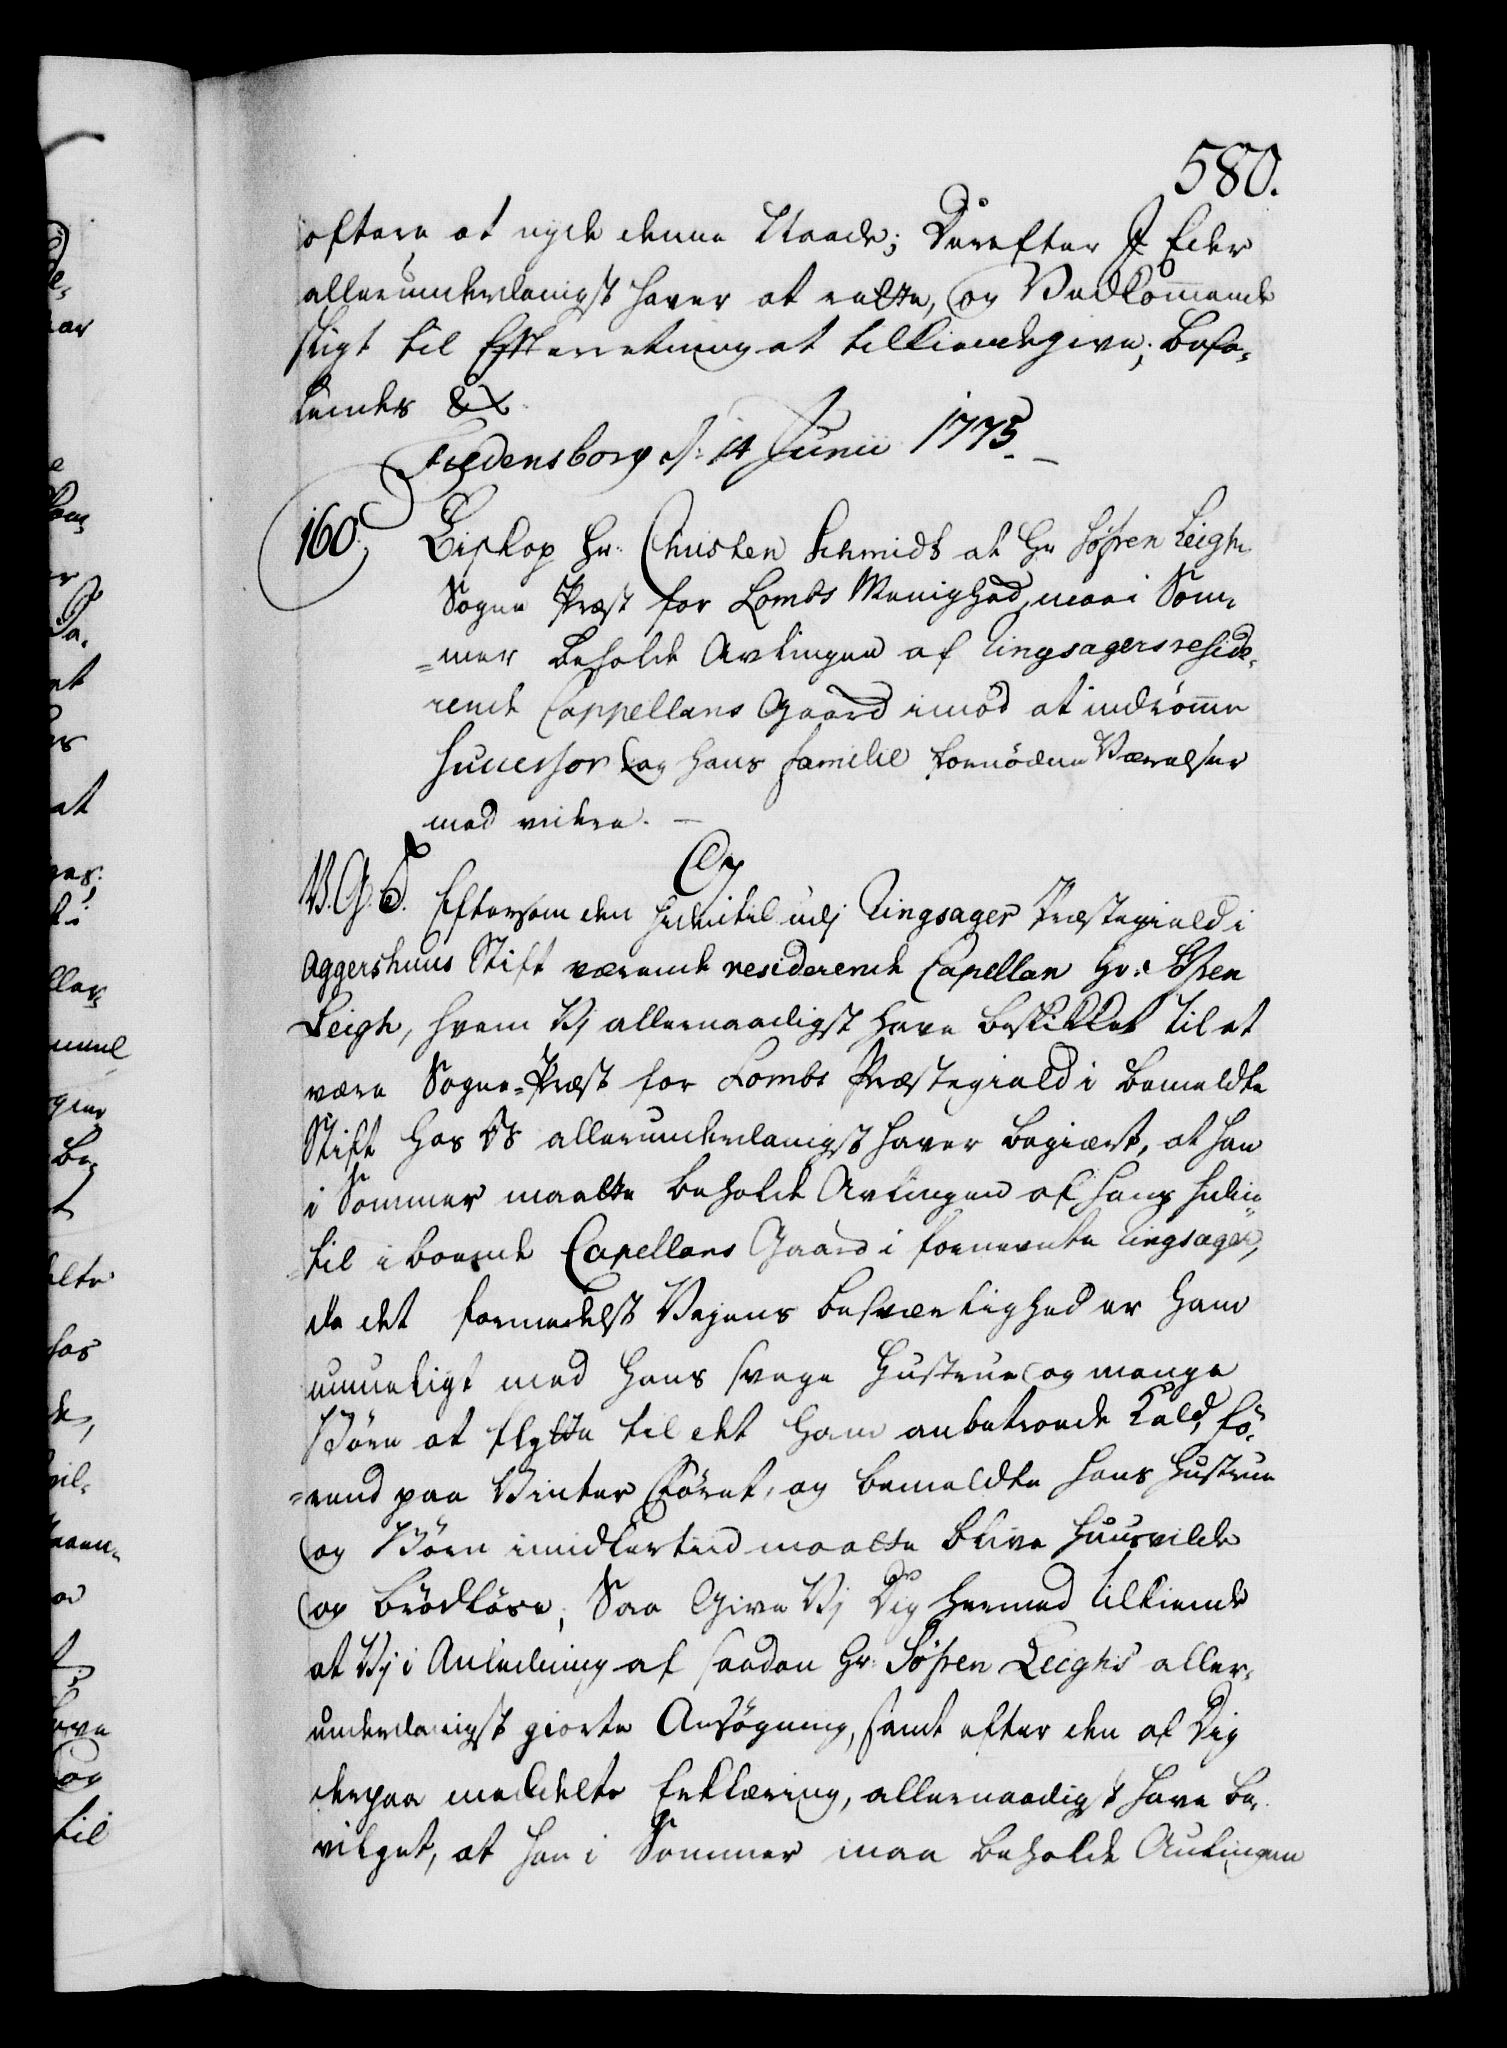 580.
oftere at nyde denne Naade; Derefter I Eder
allerunderdanigst haver at rette, og Vedkommende
sligt til Efterretning at tilkiendegive; Befa-
lendes &c.
Fredensborg d: 14 Junii 1775. -
160. Biskop Hr: Christen Schmidt at Hr Søfren Leigh
Sogne Præst for Lombs Menighed, maa i Som-
=mer beholde Avlingen af Ringsagers reside-
rende Cappellans Gaard imod at indrømme
Successor og hans familie fornødne Værelser
med videre. -
V. G. T. Efterson den hidentil udj Ringsager Præstegield i
Aggershuus Stift værende residerende Capellan Hr: Søfren
Leigh, hvem Vj allernaadigst have beskikket til at
være Sogne-Præst for Lombs Præstegield i bemeldte
Stift hos Os allerunderdanigst haver begiært, at han
i Sommer maatte beholde Avlingen af hans hiden-
=til iboende Capellans Gaard i fornevnte Ringsager,
da det formedelst Vejens besværlighed er ham
umueligt med hans svage Hustrue og mange
Børn at flytte til det ham anbetroede Kald, fø-
=rend paa Vinter Føret, og bemeldte hans Hustrue
og Børn imidlertiid maatte blive huusvilde
og brødløse; Saa Give Vj Dig hermed tilkiende
at Vj i Anledning af saadan Hr: Søfren Leighs aller-
underdanigst giorte Ansøgning, samt efter den af Dig
derpaa meddelte Erklæring, allernaadigst have be-
vilget, at han i Sommer maa beholde Avlingen